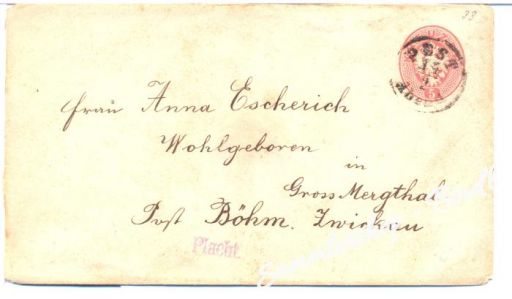 33
PEST
Frau Anna Escherich
Wohlgeboren
in
Gross Mergthal
Post Böhm. Zwickau
Placht